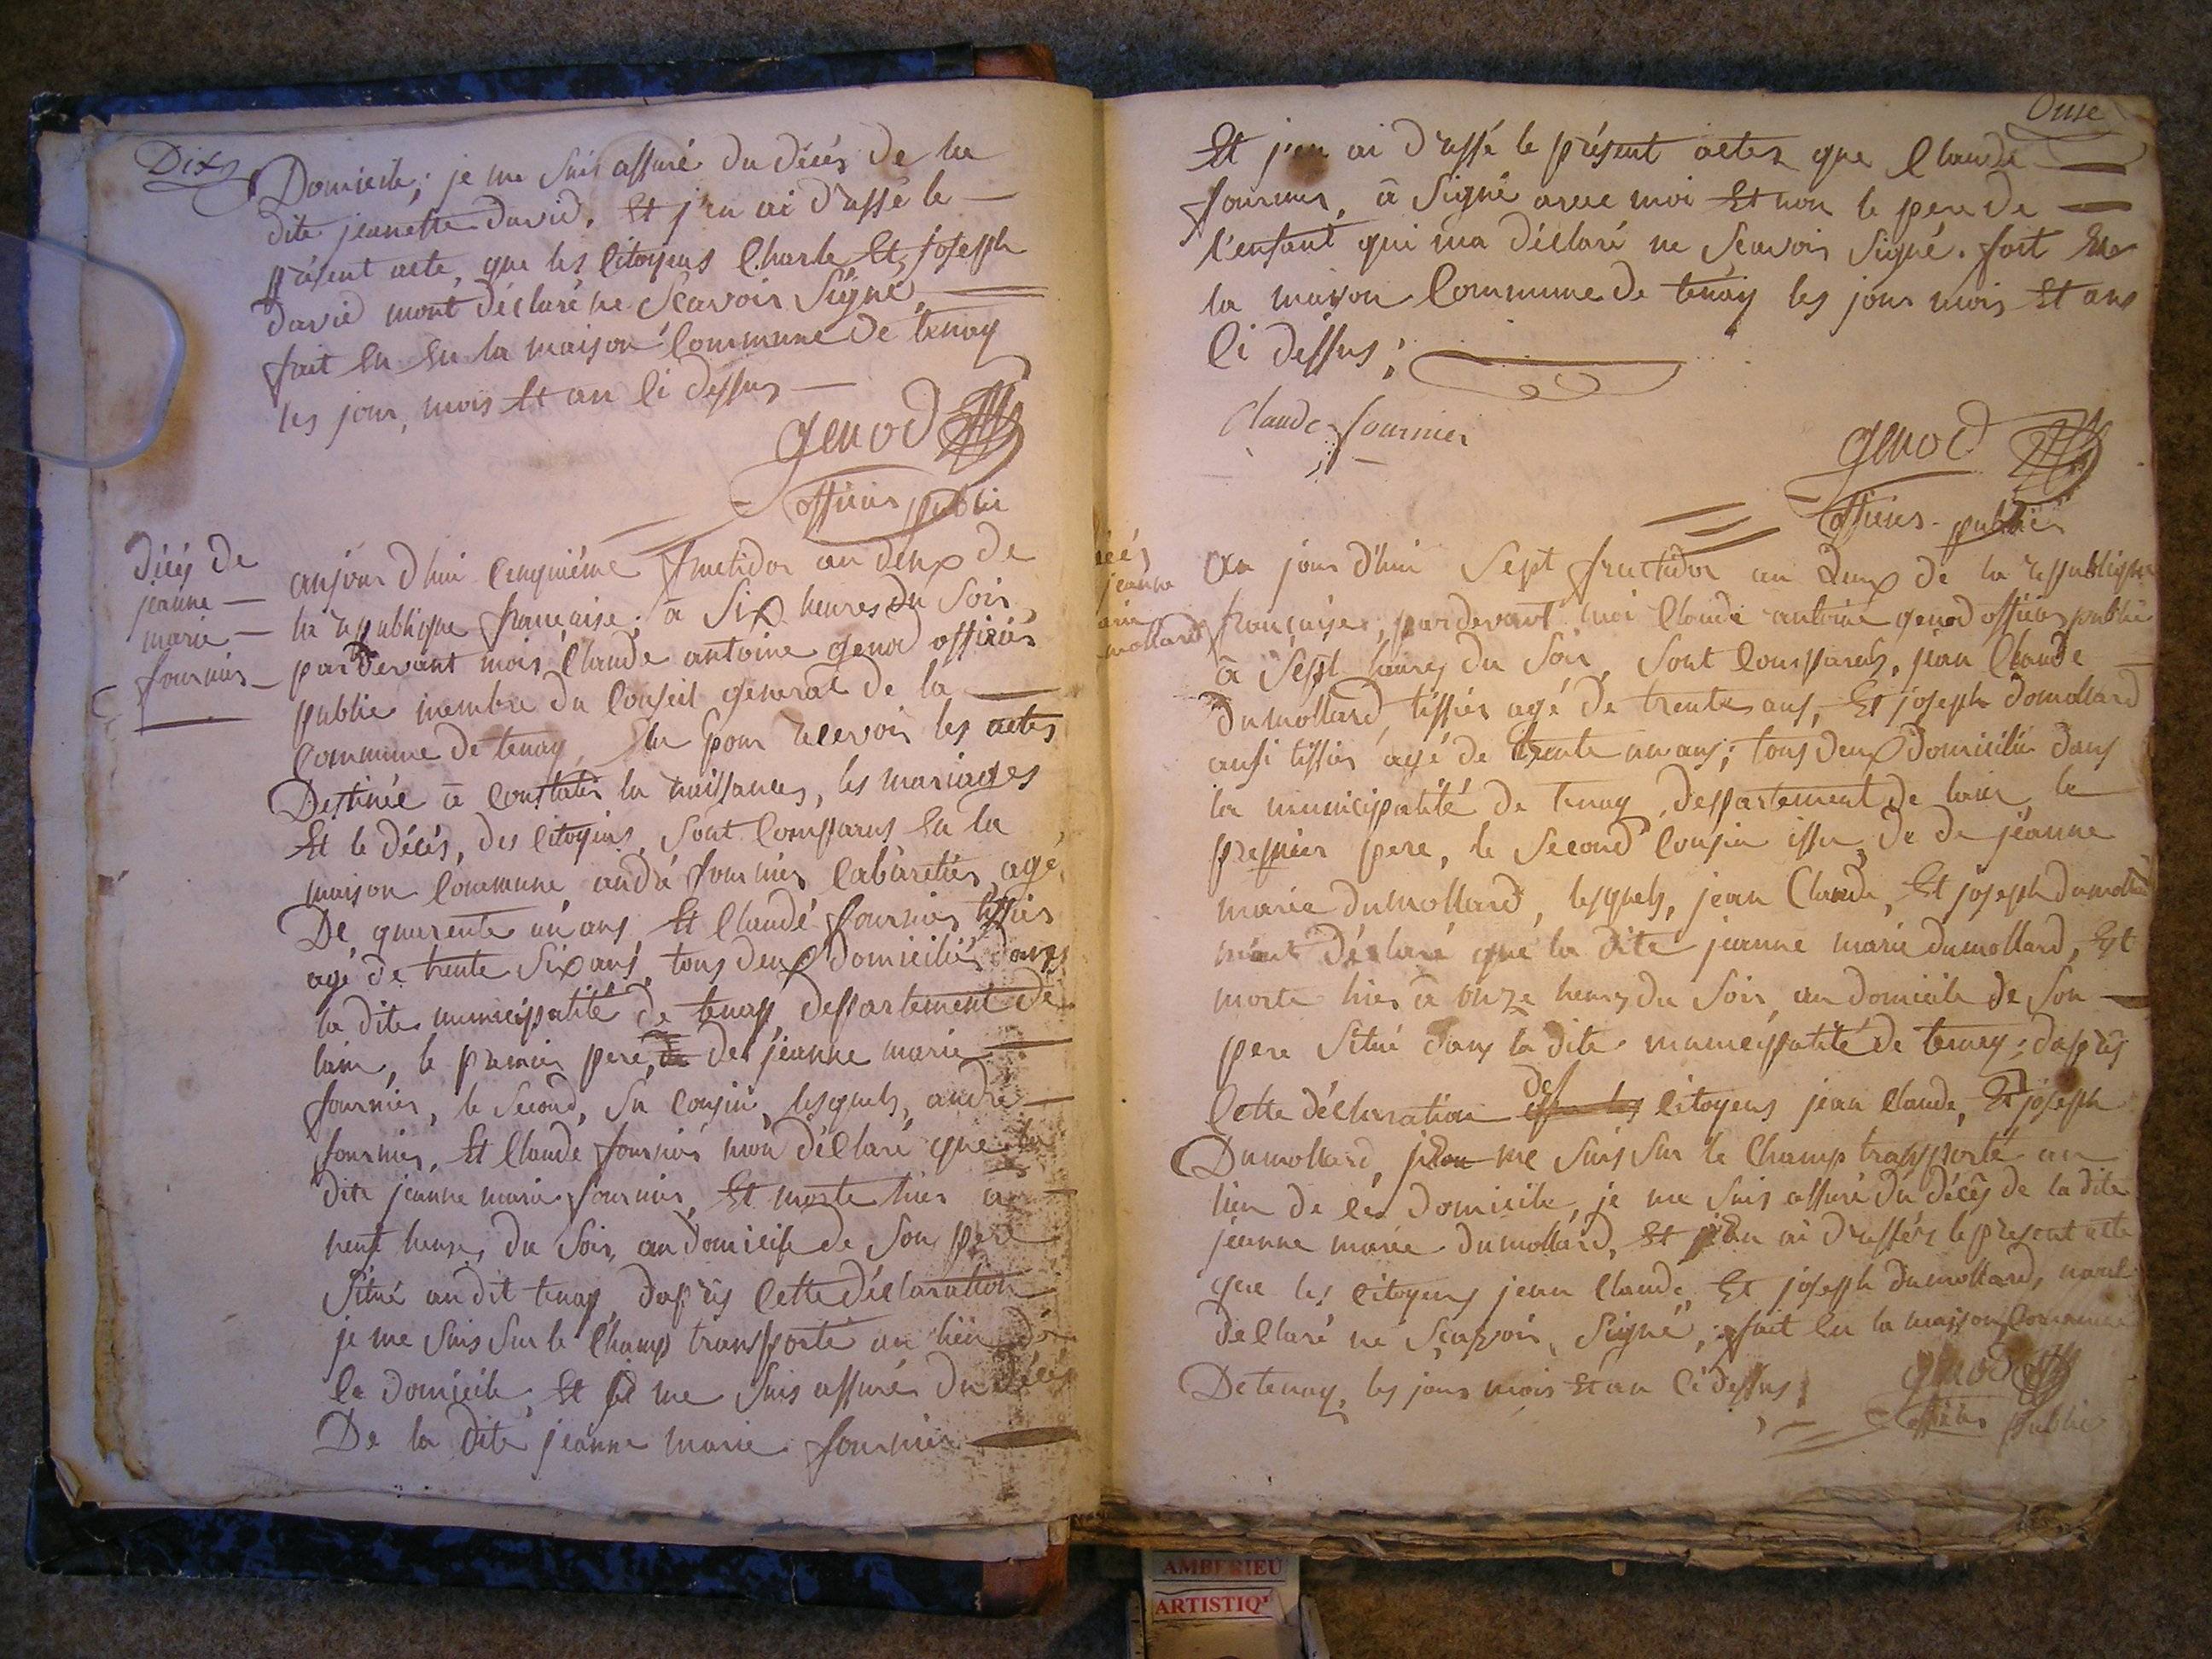 Dix
Domicile; je me suis assuré du décés de la
dite jeanette david, Et j'en ai d'ressé le
présent acte, que les Citoyens Charle Et joseph
david mont déclaré ne Scavoir Signé,
fait En En la maison Commune de tenay
les jour, mois Et an Ci dessus
genod
officier public
décés de
jeanne
marie
fournier
aujourd'hui Cinquiéme fructidor an deux de
la republique française; à Six heures du Soir
pardevant moi, Claude antoine genod officiér
public membre du Conseil general de la
Commune de tenay, Elu pour recevoir les actes
Destinée à Constater la naissances, les mariages
Et le décés, des Citoyens, Sont Comparus En la
maison Commune andré fournier Cabaretier agé
De quarente un ans Et Claude fournier tissier
agé de trente Six ans, tous deux domiciliés dans
la dite municipalité de tenay departement de
lain, le premier pere, de jeanne marie
fournier, le Second, Su Cousin, lesquels, andré
fournier, Et Claude fournier mon déclaré que la
dite jeanne marie fournier, Et morte hier a
neuf heures, du Soir, au domicile de Son pere
Situé au dit tenay, daprès Cette déclaration
je me Suis Sur le Champ transporté au lieu de
Ce domicile, Et je me Suis assurés du décés
De la dite jeanne marie fournier
Onse
Et j'en ai d'ressé le présent actes que Claude
fournier, à Signé avec moi Et non le pere de
l'enfant qui ma déclaré ne Scavoir Signé. fait En
la maison Commune de tenay les jour mois Et ans
Ci dessus;
Claude fournier
genod
officier public
jeanne
mollard
Au jour d'hui Sept fructidor an deux de la republique
françaises, pardevant moi Claude antoine genod officier public
à Sept heures du Soir, Sont Comparus, jean Claude
Dumollard, tissier agé de trente ans, Et joseph domollard
ausi tissier agé de trente un ans; tous deux domicilié dans
la municipalité de tenay, departement de lain, le
premier pere, le Second Cousin issu de de jeanne
marie dumollard, lesquels, jean Claude, Et joseph dumollard
mont déclaré que la dite jeanne marie dumollard, Est
morte hier à onze heures du Soir, au domicile de Son
pere Situé dans la dite municipalité de tenay; daprès
Cette déclaration des Citoyens jean Claude, Et joseph
Dumollard, me Suis Sur le Champ transporté au
lieu de Ces domicile, je me Suis assuré du décés de la dite
jeanne marie dumollard, Et jen ai dressérs le present acte
que les Citoyens jean Claude, Et joseph dumollard, mont
declaré ne Scavoir, Signé, fait En la maison Commune
De tenay, les jour mois Et an Ci dessus;
genod
officier public
AMBERIEU
ARTISTIQ'